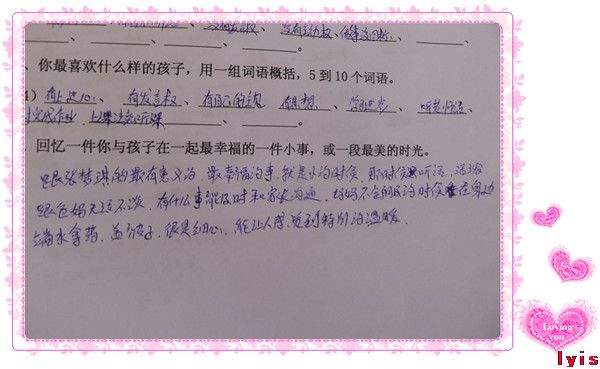 没有主动权
你最喜欢什么样的孩子,用一组词语概括,5 到 10 个词语。
有上进心、 有发言权、 有自己的 有思想、 学习进步、 听老师话、
完成作业 上课认真听课
回忆一件你与孩子在一起最幸福的一件小事,或一段最美的时光。
跟张梦琪的最有意义的 最幸福的事 就是小的时候 那时候 听话,活泼
跟爸妈无话不谈。有什么事能及时和家长沟通,妈妈不舒服的时候 在身边
端水拿药。盖被子。很是细心,能让人感觉到特别的温暖。
Loving
you
lyis